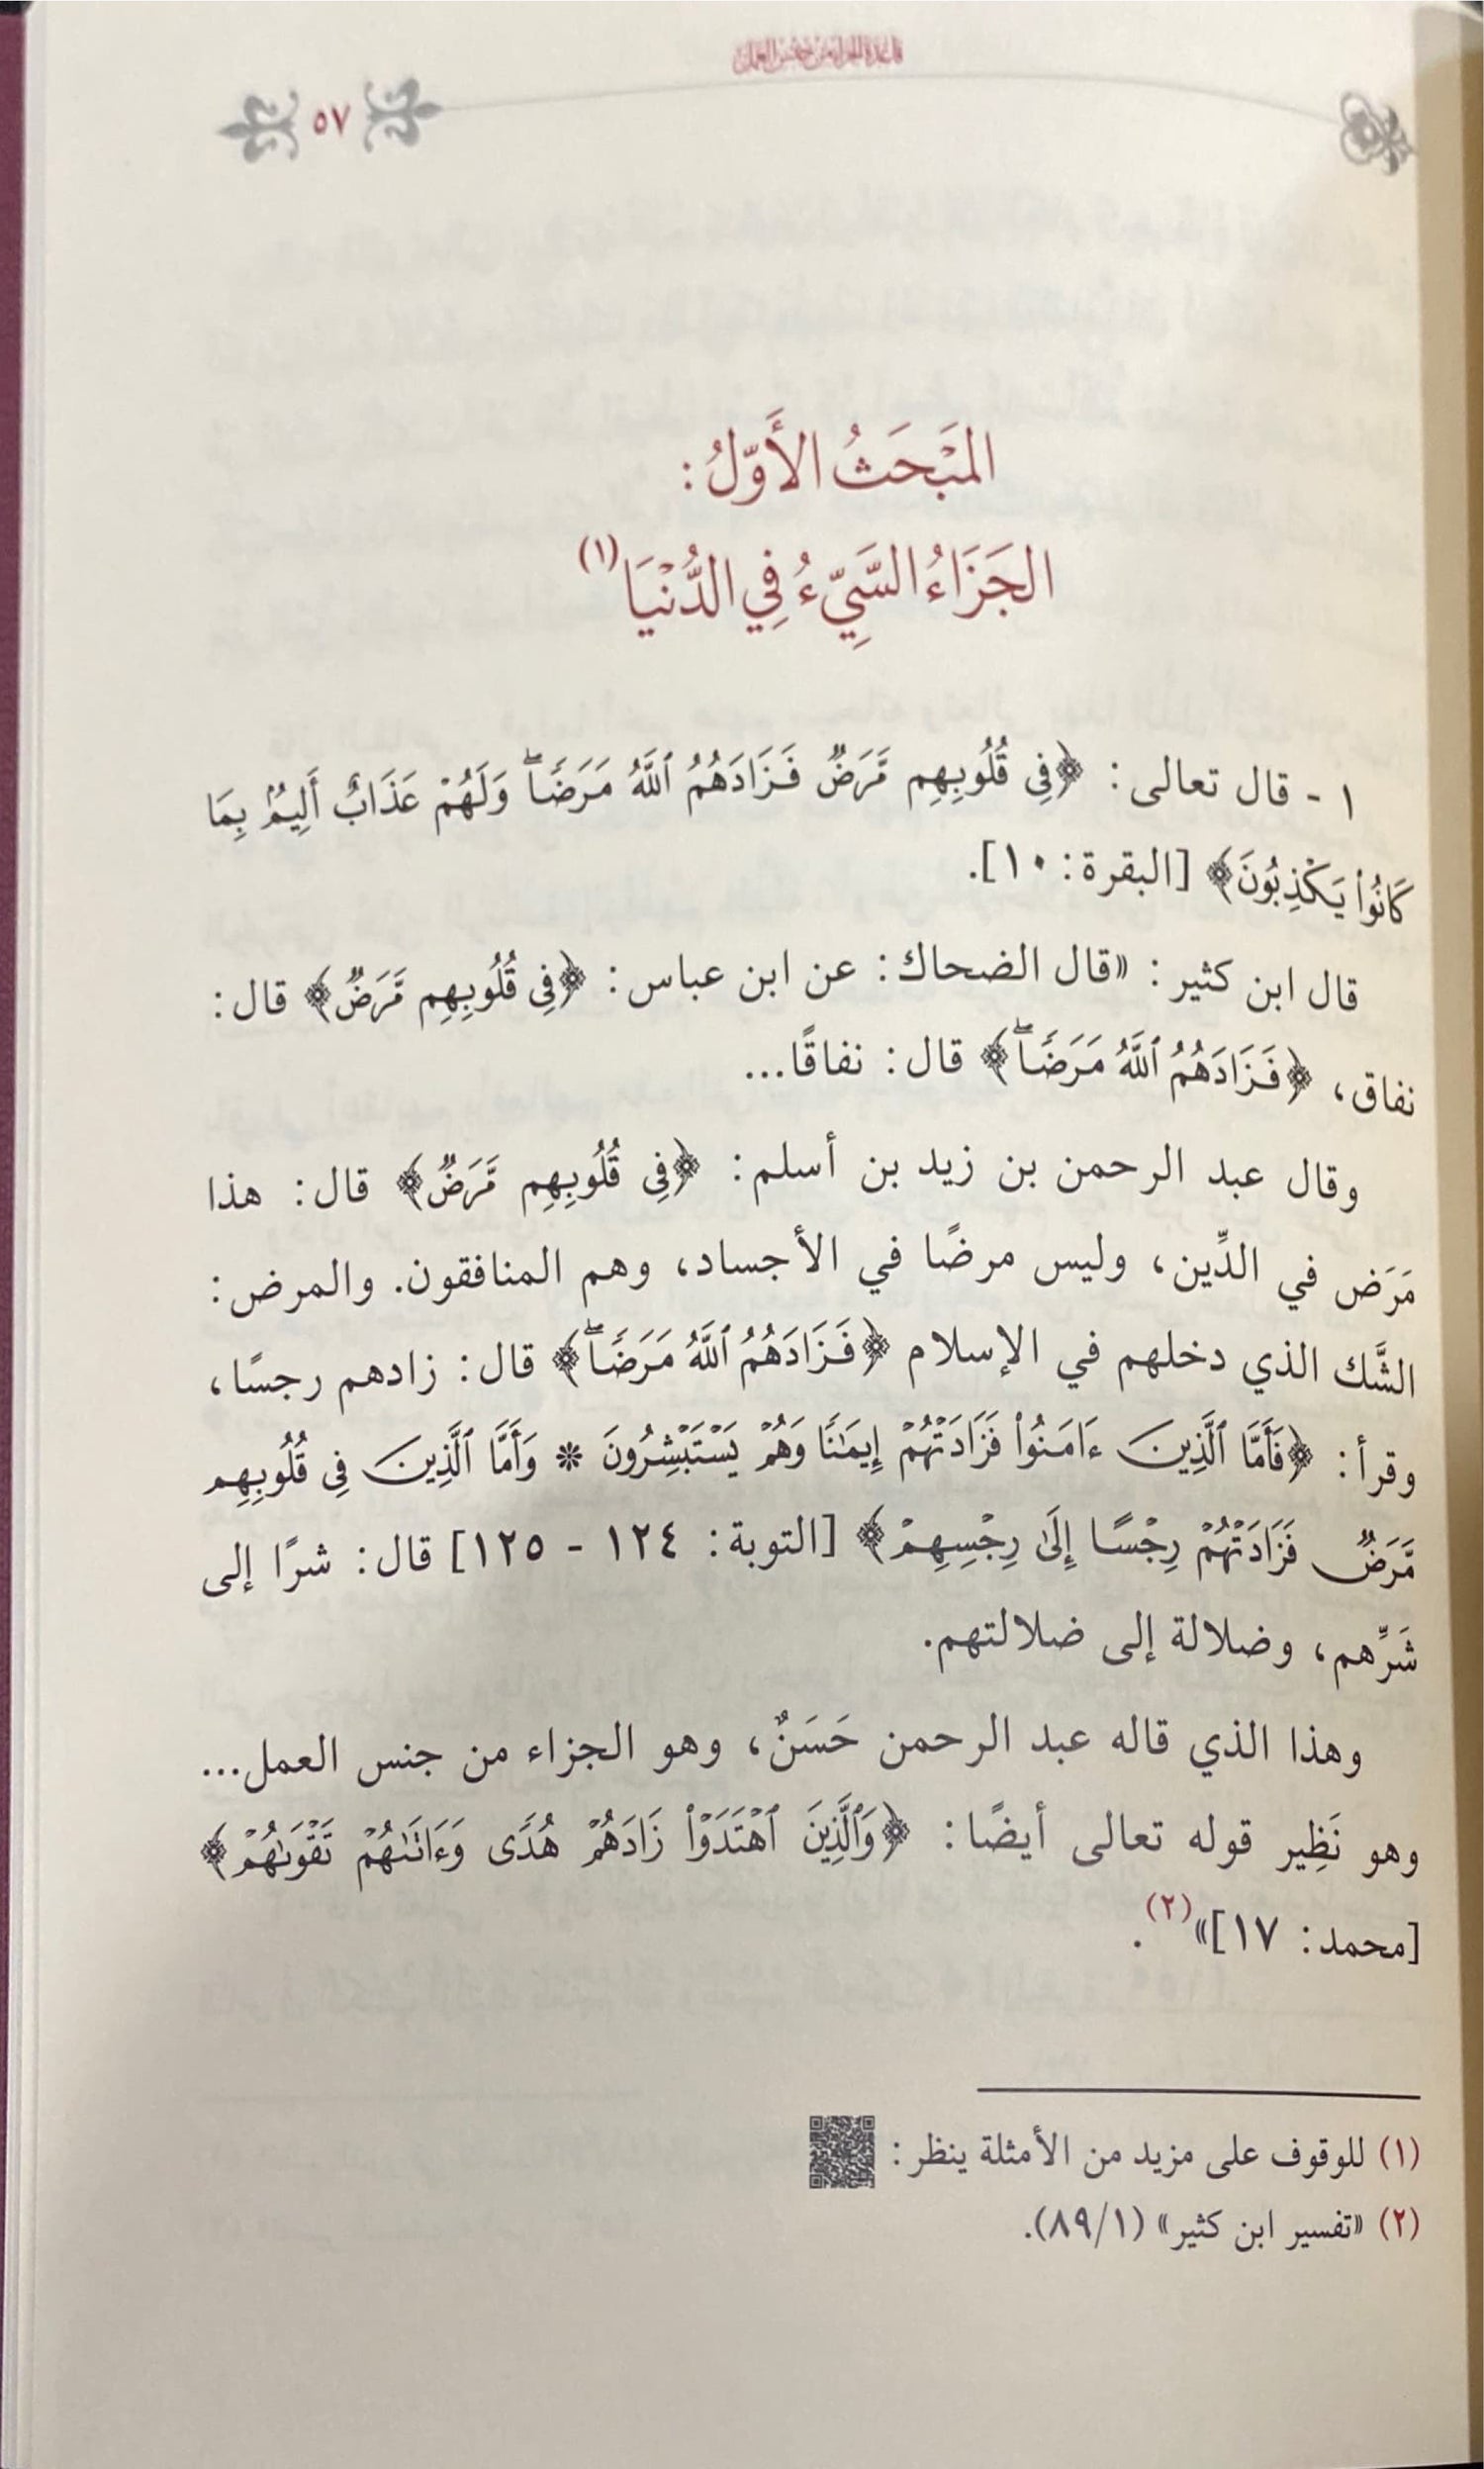 قاعدة الجزاء من جنس العمل
٥٧
المَبْحَثُ الأَوَّلُ:
الجَزَاءُ السَّيِّءُ فِي الدُّنْيَا(١)
١ - قال تعالى: ﴿فِى قُلُوبِهِم مَّرَضٌ فَزَادَهُمُ ٱللَّهُ مَرَضًاۖ وَلَهُمْ عَذَابٌ أَلِيمٌۢ بِمَا
كَانُوا۟ يَكْذِبُونَ﴾ [البقرة: ١٠].
قال ابن كثير: «قال الضحاك: عن ابن عباس: ﴿فِى قُلُوبِهِم مَّرَضٌ﴾ قال:
نفاق، ﴿فَزَادَهُمُ ٱللَّهُ مَرَضًاۖ﴾ قال: نفاقًا...
وقال عبد الرحمن بن زيد بن أسلم: ﴿فِى قُلُوبِهِم مَّرَضٌ﴾ قال: هذا
مَرَض في الدِّين، وليس مرضًا في الأجساد، وهم المنافقون. والمرض:
الشَّك الذي دخلهم في الإسلام ﴿فَزَادَهُمُ ٱللَّهُ مَرَضًاۖ﴾ قال: زادهم رجسًا،
وقرأ: ﴿فَأَمَّا ٱلَّذِينَ ءَامَنُوا۟ فَزَادَتْهُمْ إِيمَٰنًا وَهُمْ يَسْتَبْشِرُونَ * وَأَمَّا ٱلَّذِينَ فِى قُلُوبِهِم
مَّرَضٌ فَزَادَتْهُمْ رِجْسًا إِلَىٰ رِجْسِهِمْ﴾ [التوبة: ١٢٤ - ١٢٥] قال: شرًا إلى
شَرِّهم، وضلالة إلى ضلالتهم.
وهذا الذي قاله عبد الرحمن حَسَنٌ، وهو الجزاء من جنس العمل...
وهو نَظِير قوله تعالى أيضًا: ﴿وَٱلَّذِينَ ٱهْتَدَوْا۟ زَادَهُمْ هُدًى وَءَاتَىٰهُمْ تَقْوَىٰهُمْ﴾
[محمد: ١٧]»(٢).
(١) للوقوف على مزيد من الأمثلة ينظر:
(٢) «تفسير ابن كثير» (١/٨٩).